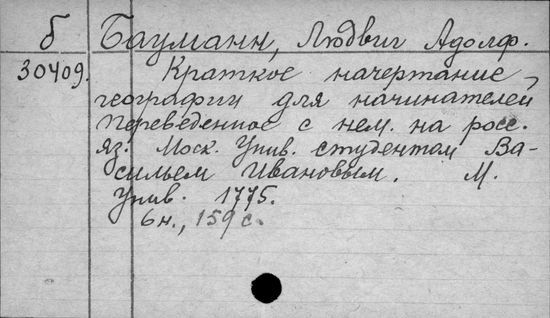 б Бауманн, Людвиг Адолф.
30409. Краткое начертание
географии для начинателей,
переведенное с нем. на росс.
яз. Моск. Унив. студентом Ва-
сильем Ивановым. М.
Унив. 1775.
6н., 159 с.